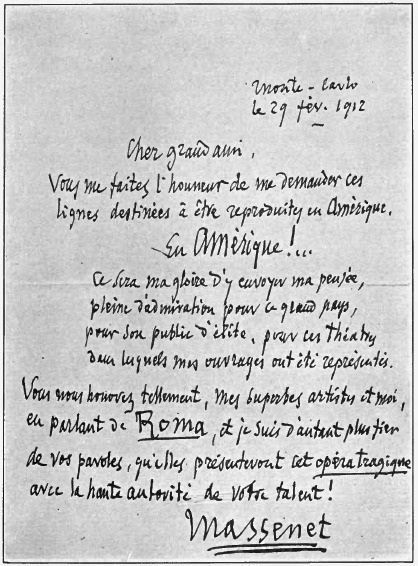 Monte-Carlo
le 29 fév. 1912
Cher grand ami,
Vous me faites l'honneur de me demander ces
lignes destinées à être reproduites en Amérique.
En Amérique!...
Ce sera ma gloire d'y envoyer ma pensée,
pleine d'admiration pour ce grand pays,
pour son public d'élite, pour ces théâtres
dans lesquels mes ouvrages ont été représentés.
Vous nous honorez tellement, mes superbes artistes et moi,
en parlant de Roma, et je suis d'autant plus fier
de vos paroles, qu'elles présenteront cet opéra tragique
avec la haute autorité de votre talent!
Massenet